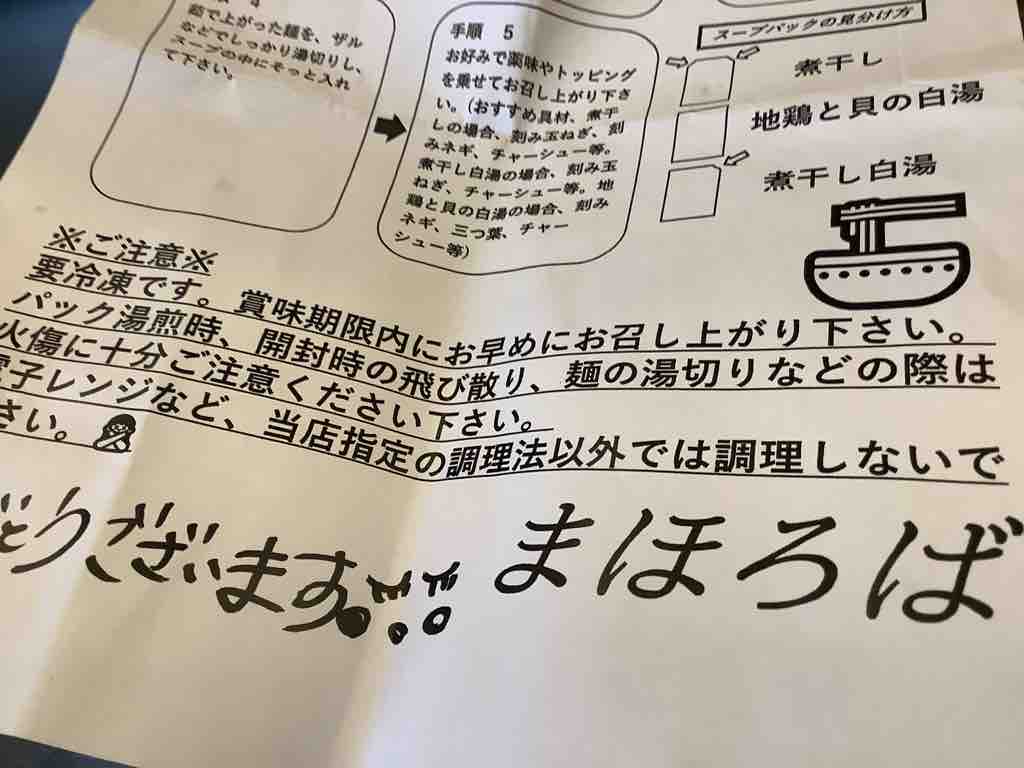 茹で上がった麺を、ザル
などでしっかり湯切りし、
スープの中にそっと入れ
て下さい。
手順 5
お好みで薬味やトッピング
を乗せてお召し上がり下さ
い。(おすすめ具材、煮干
しの場合、刻み玉ねぎ、刻
みネギ、チャーシュー等。
煮干し白湯の場合、刻み玉
ねぎ、チャーシュー等。地
鶏と貝の白湯の場合、刻み
ネギ、三つ葉、チャー
シュー等)
スープパックの見分け方
煮干し
地鶏と貝の白湯
煮干し白湯
※ご注意※
要冷凍です。賞味期限内にお早めにお召し上がり下さい。
パック湯煎時、開封時の飛び散り、麺の湯切りなどの際は
火傷に十分ご注意ください下さい。
電子レンジなど、当店指定の調理法以外では調理しないで
さい。
とうございます
まほろば